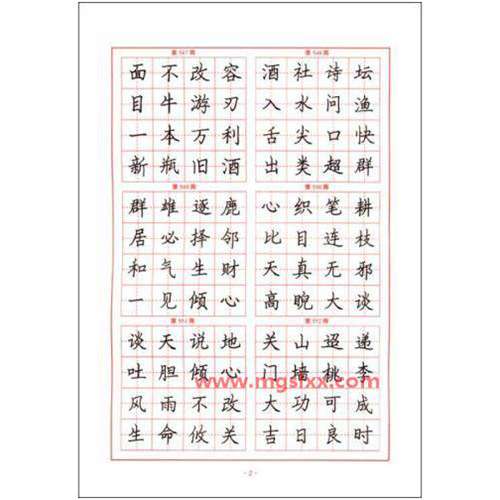 面不改容
目牛游刃
一本万利
新瓶旧酒
酒社诗坛
入水问渔
舌尖口快
出类超群
群雄逐鹿
居必择邻
和气生财
一见倾心
心织笔耕
比目连枝
天真无邪
高睨大谈
谈天说地
吐胆倾心
风雨不改
生命攸关
关山迢递
门墙桃李
大功可成
吉日良时
www.mgslxx.com
- 2 -